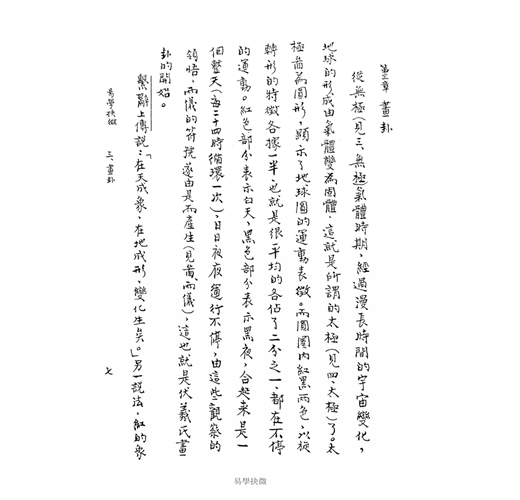 第三章 畫卦
從無極(見三、無極氣體時期，經過漫長時間的宇宙變化，
地球的形成由氣體變為固體，這就是所謂的太極(見四、太極)了。太
極音為圓形，顯示了地球圓的運動表徵。而圓圈內紅黑兩色，以旋
轉形的特徵各據一半，也就是很平均的各佔了二分之一，都在不停
的運動。紅色部分表示白天，黑色部分表示黑夜，合起來是一
個整天(每二十四時循環一次)，日日夜夜運行不停，由這些觀察的
領悟，兩儀的符號遂由是而產生(見黃、兩儀)，這也就是伏羲氏畫
卦的開始。
繫辭上傳說：「在天成象，在地成形，變化生矣。」另一説法，紅的象
易學抉微
三、畫卦
七
易學抉微